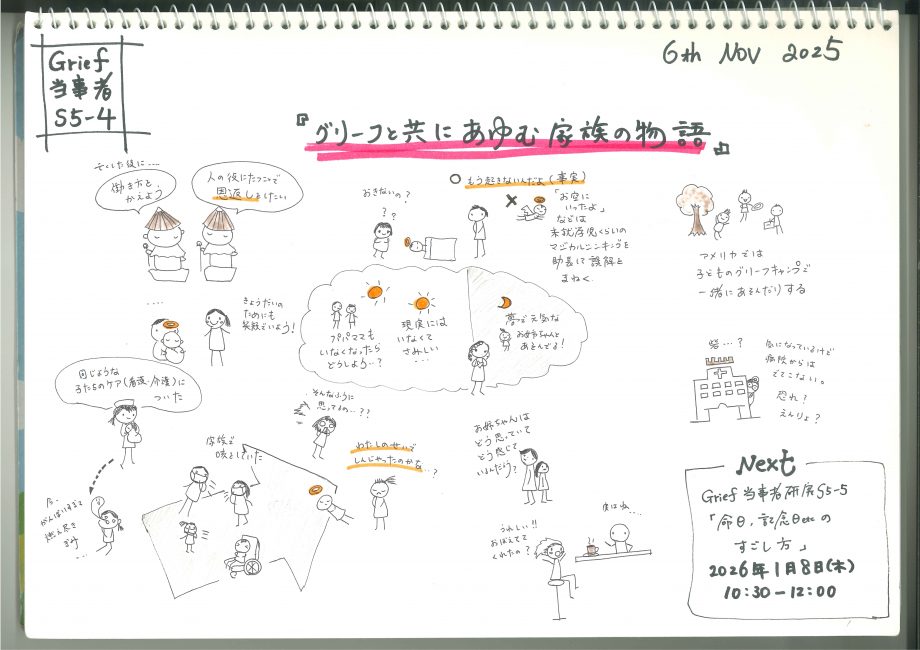 Grief
当事者
S5-4
6th Nov 2025
『グリーフと共にあゆむ家族の物語』
亡くした後に…
働き方を
かえよう
人の役にたつことで
恩返ししたい
おきないの？
？？
○ もう起きないんだよ（事実）
×
「お空に
いったよ」
などは
未就学児くらいの
マジカルシンキングを
助長して誤解を
まねく
アメリカでは
子どものグリーフキャンプで
一緒にあそんだりする
‥‥
きょうだいの
ためにも
笑顔でいよう！
パパママも
いなくなったら
どうしよう…？
現実には
いなくて
さみしい
‥‥
夢で元気な
お姉ちゃんと
あそんでる！
砦…？
気になっているけど
病院からは
でてこない。
恐れ？
えんりょ？
同じような
子たちのケア（看護・介護）に
ついた
今、
がんばりすぎて
燃え尽き
ぎみ
…
家族で
咳をしていた
そんなふうに
思ってるの…？？
わたしのせいで
しんじゃったのかな…？
お姉ちゃんは
どう思っていて
どう感じて
いるんだろう？
うれしい!!
おぼえてて
くれたの？
実はね…
Next
Grief当事者研究S5-5
「命日，記念日etcの
すごし方」
2026年1月8日（木）
10:30－12:00